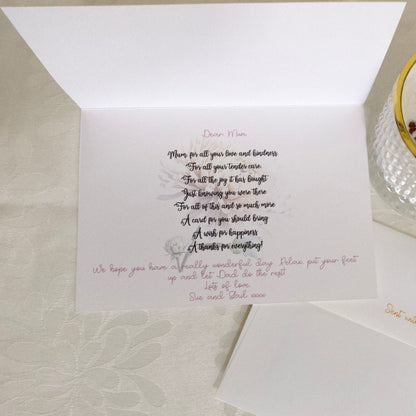 Dear Mum
Mum, for all your love and kindness
For all your tender care.
For all the joy it has bought
Just knowing you were there
For all of this and so much more
A card for you should bring
A wish for happiness
A thanks for everything!
We hope you have a really wonderful day. Relax, put your feet
up and let Dad do the rest
Lots of love
Sue and Paul xxxx
Sent with